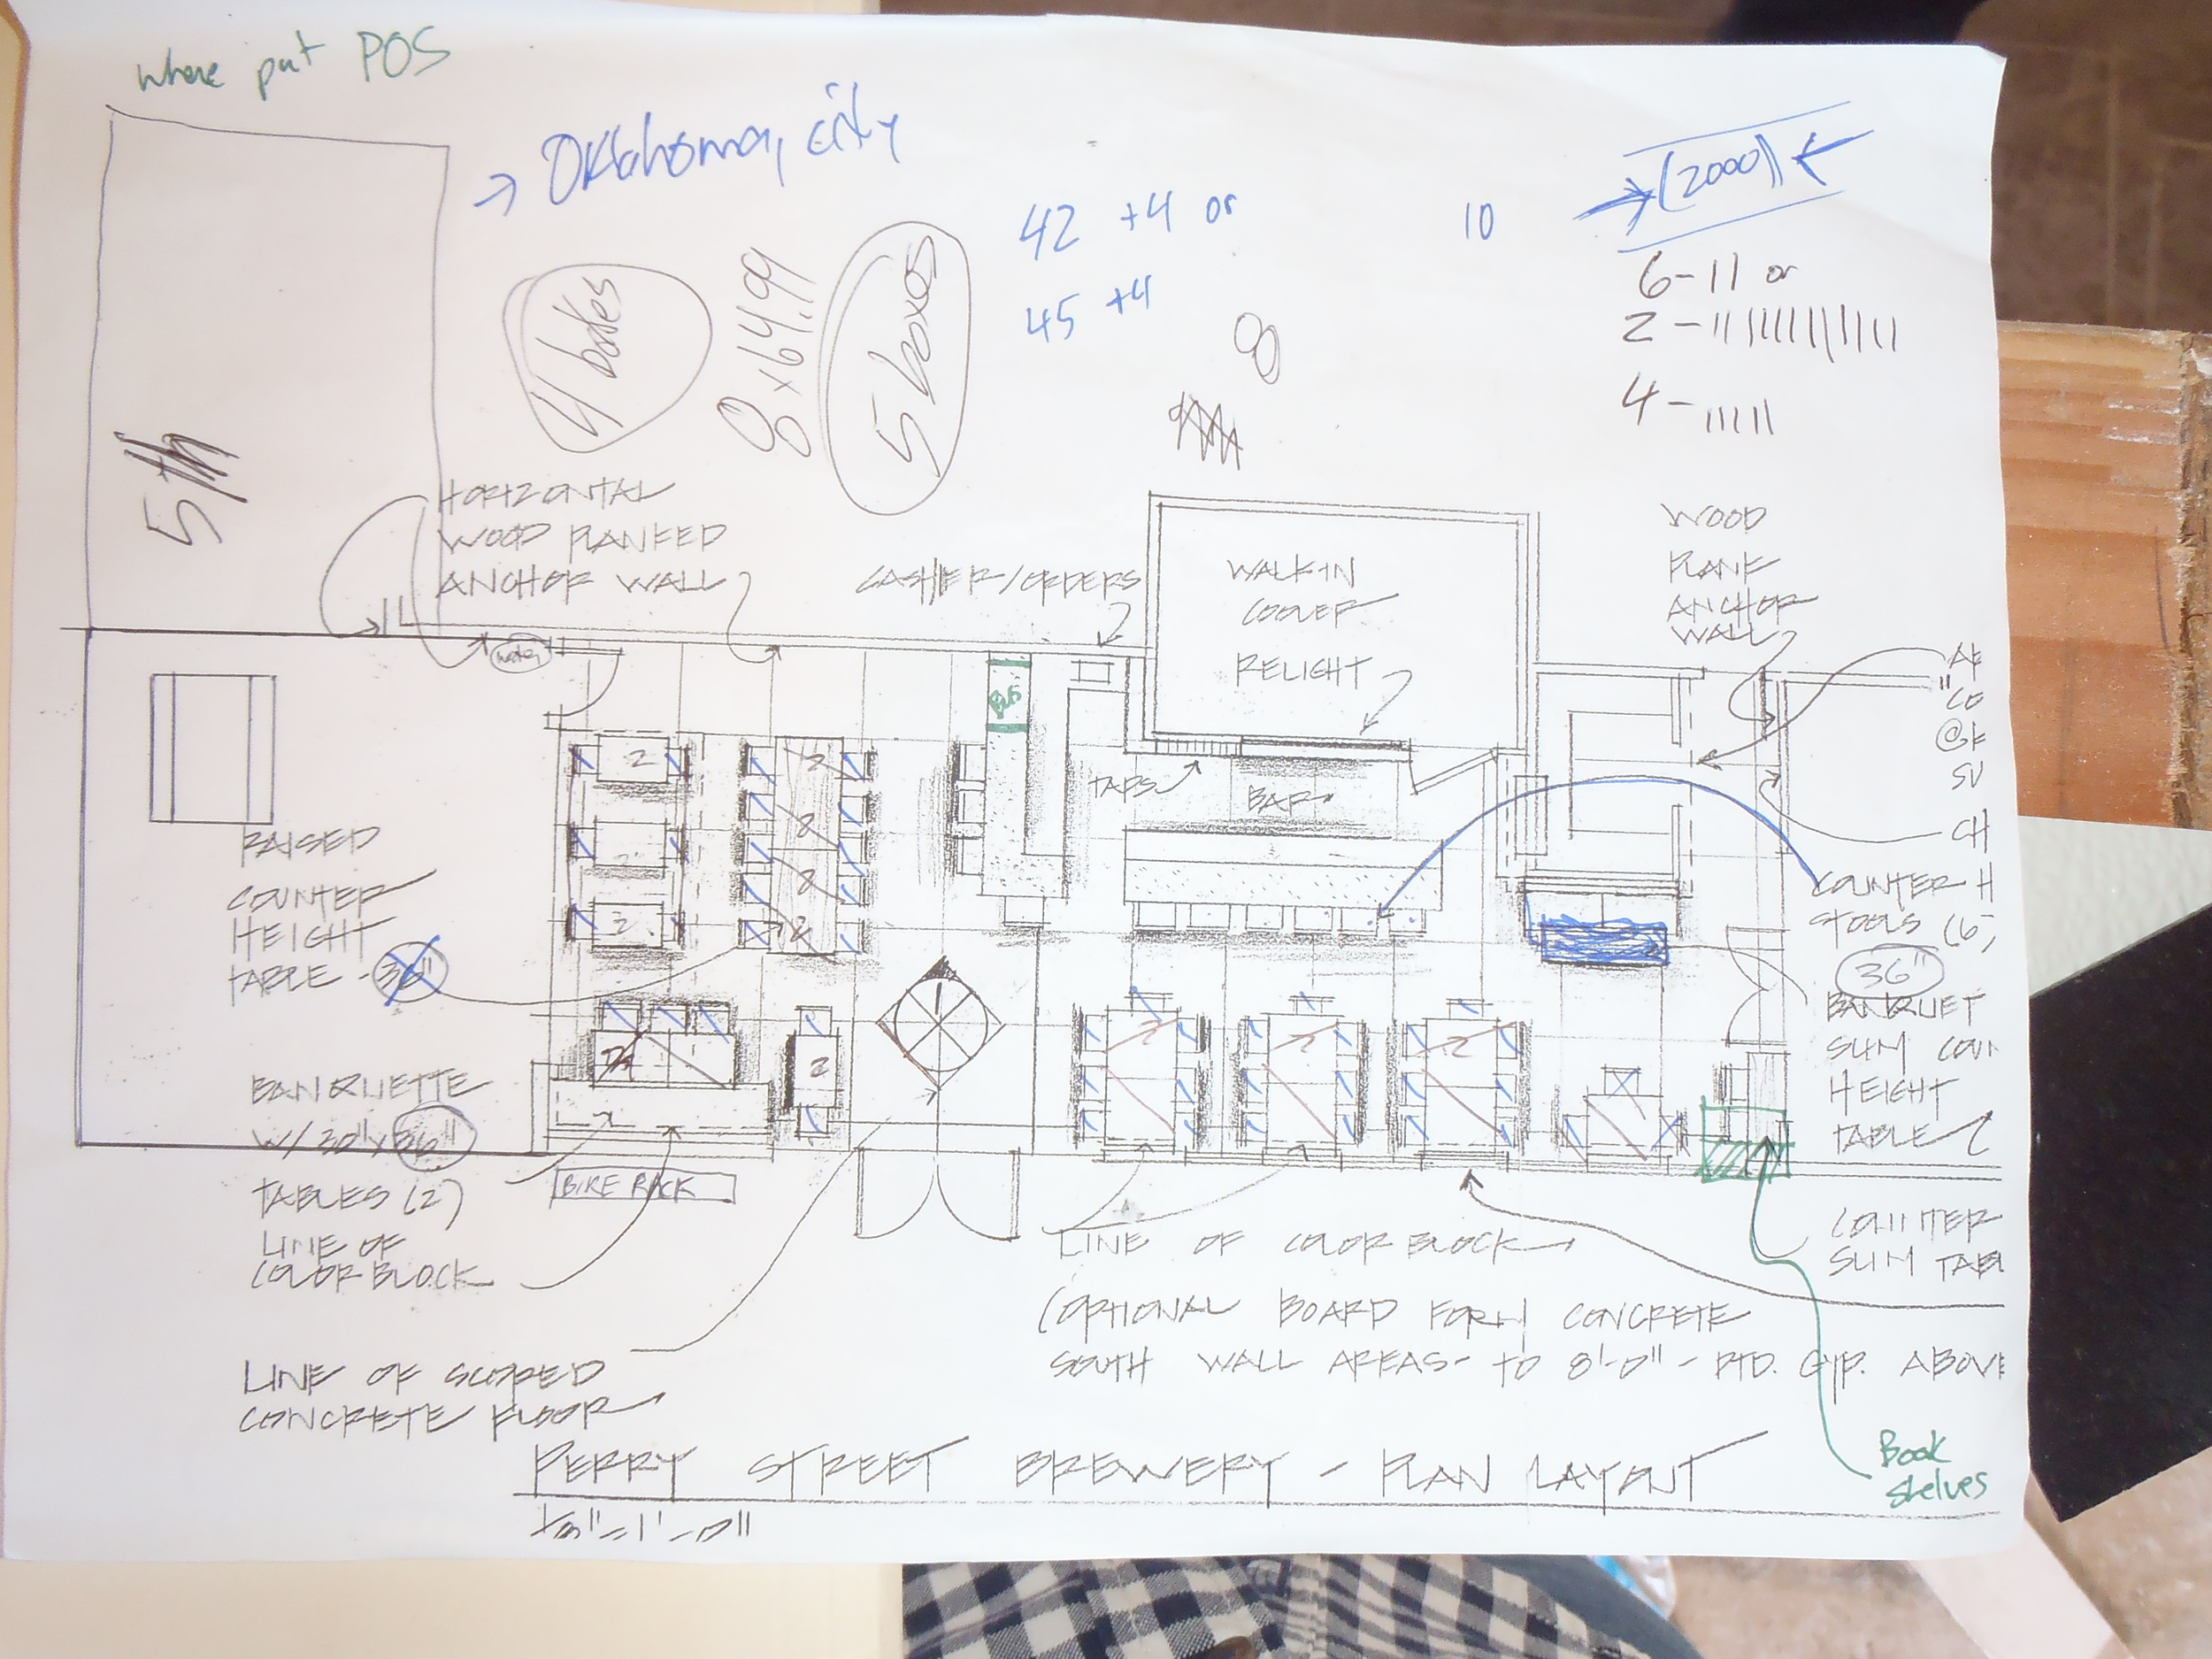 where put POS
→ Oklahoma, city
(2000) ←
42 +4 or
10
45 +4
8 x 64.99
5 boxes
8
6-11 or
2 - 11 1111111111
4 - 11111
5th
HORIZONTAL
WOOD PLANKED
ANCHOR WALL
CASHIER/ORDERS
WALK-IN
COOLER
RELIGHT
WOOD
PLANK
ANCHOR
WALL
TAPS
BAR
2
2
2
2
RAISED
COUNTER
HEIGHT
TABLE - 36"
BANQUETTE
W/ 30" x 36"
TABLES (2)
LINE OF
COLOR BLOCK
BIKE RACK
COUNTER H
STOOLS (6)
36"
BANQUET
SLIM COUN
HEIGHT
TABLE
COUNTER
SLIM TABL
LINE OF COLOR BLOCK
(OPTIONAL BOARD FORM CONCRETE
SOUTH WALL AREAS - TO 8'-0" - PTD. GYP. ABOVE
LINE OF SCOPED
CONCRETE FLOOR
Book
shelves
PERRY STREET BREWERY - PLAN LAYOUT
1/8" = 1'-0"